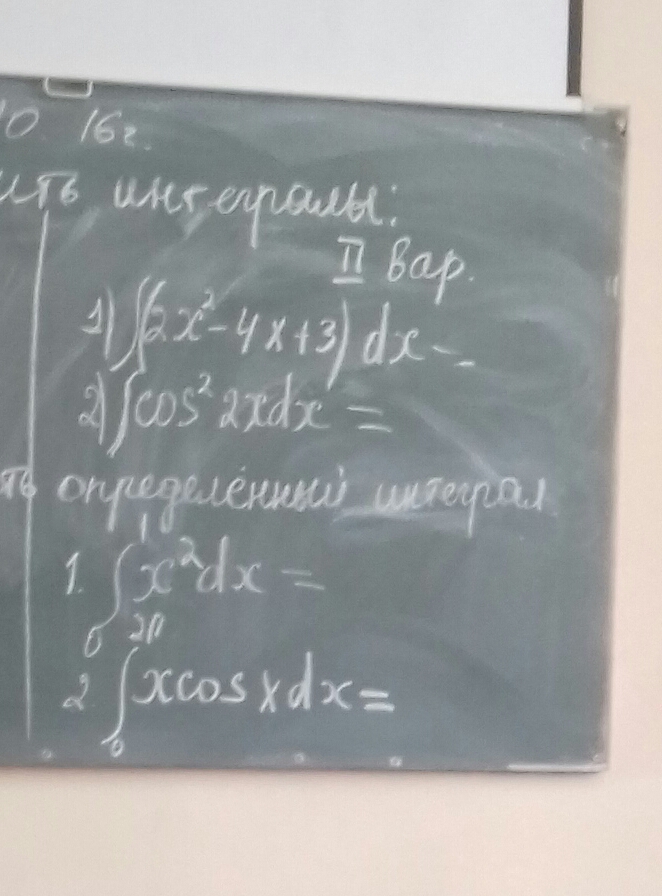 10. 16г.
ить интегралы:
II вар.
1) ∫(2x²-4x+3) dx -
2) ∫cos² 2xdx =
ть определённый интеграл
1. ∫₀¹ x²dx =
2. ∫₀²ᴨ xcos x dx =